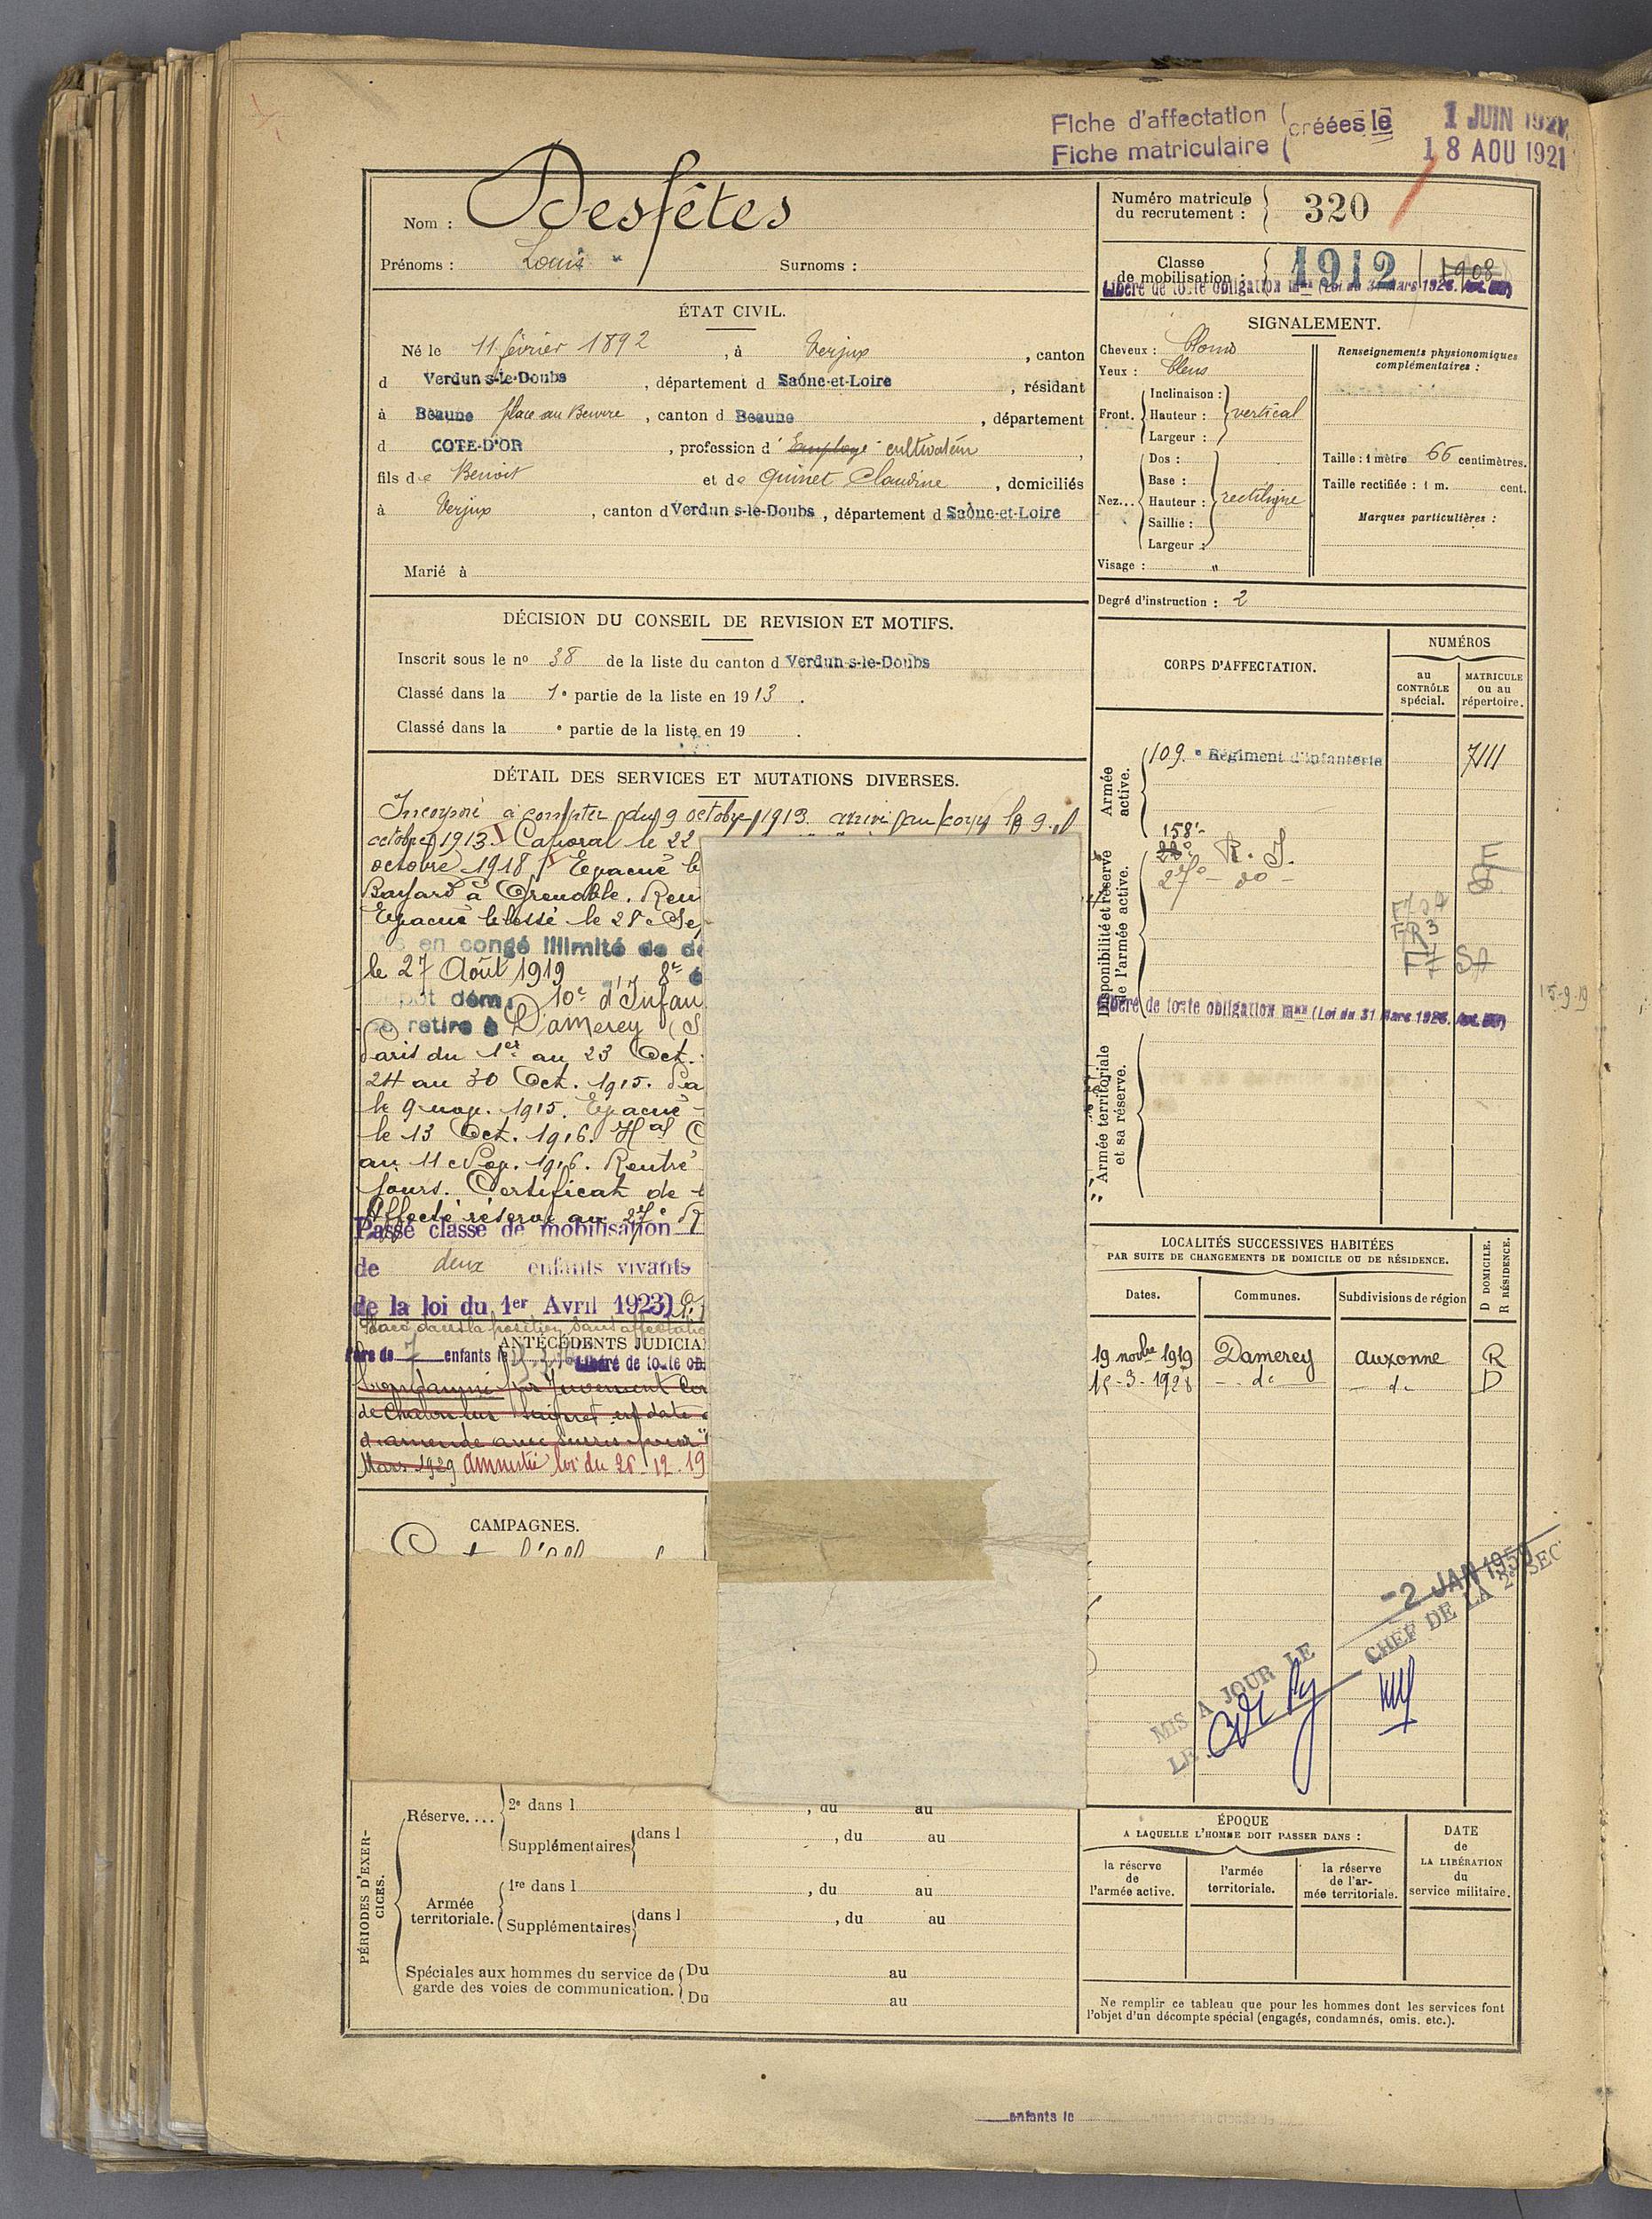 Fiche d'affectation ( créées le 1 JUIN 192
Fiche matriculaire ( 18 AOU 1921
Nom : Desfêtes
Prénoms : Louis Surnoms :
Numéro matricule du recrutement : 320
Classe de mobilisation : 1912 1908
Libéré de toute obligation mre (Loi du 31 Mars 1928.
ÉTAT CIVIL.
Né le 11 février 1892, à Verjux, canton
d Verdun s-le-Doubs, département d Saône-et-Loire, résidant
à Beaune place au Beurre, canton d Beaune, département
d COTE-D'OR, profession d'Employé cultivateur,
fils de Benoit et de Quinet Claudine, domiciliés
à Verjux, canton d Verdun s-le-Doubs, département d Saône-et-Loire
Marié à
SIGNALEMENT.
Cheveux : blond
Yeux : bleus
Front. Inclinaison : Hauteur : Largeur : vertical
Nez... Dos : Base : Hauteur : Saillie : Largeur : rectiligne
Visage : "
Renseignements physionomiques
complémentaires :
Taille : 1 mètre 66 centimètres.
Taille rectifiée : 1 m. cent.
Marques particulières :
Degré d'instruction : 2
DÉCISION DU CONSEIL DE REVISION ET MOTIFS.
Inscrit sous le no 38 de la liste du canton d Verdun s-le-Doubs
Classé dans la 1e partie de la liste en 1913.
Classé dans la e partie de la liste en 19 .
DÉTAIL DES SERVICES ET MUTATIONS DIVERSES.
Incorporé à compter du 9 octobre 1913 arrivé au corps le 9
octobre 1913. Caporal le 22
octobre 1918. Evacué le
Bayard à Grenoble.
Evacué blessé le 28
en congé illimité de dé
le 27 Août 1919 8e
dépôt dém. 10e d'Infan
se retire à Damerey (S
Paris du 1er au 23 Oct.
24 au 30 Oct. 1915.
le 9 nov. 1915. Evacué
le 13 Oct. 1916. Hal
au 11 Nov. 1916. Rentré
jours. Certificat de
Affecté réserve au 27e R
Passé classe de mobilisation
de deux enfants vivants
de la loi du 1er Avril 1923)
Placé dans la position sans affectatio
ANTÉCÉDENTS JUDICIA
Père de 7 enfants le Libéré de toute ob
Condamné par Jugement
de Chalon sur en date
d'amende avec sursis pour
Mars 1929 Amnistié loi du 26-12-19
CAMPAGNES.
CORPS D'AFFECTATION.
NUMÉROS
au CONTRÔLE spécial.
MATRICULE ou au répertoire.
Armée active.
109e Régiment d'infanterie 7111
Disponibilité et réserve de l'armée active.
158e
R. I.
27e - do -
FR3
SA
Libéré de toute obligation mre (Loi du 31 Mars 1928.
15-9-19
Armée territoriale et sa réserve.
LOCALITÉS SUCCESSIVES HABITÉES
PAR SUITE DE CHANGEMENTS DE DOMICILE OU DE RÉSIDENCE.
D DOMICILE.
R RÉSIDENCE.
Dates. Communes. Subdivisions de région
19 novbre 1919 Damerey Auxonne R
15-3-1928 - do - do D
MIS A JOUR LE -2 JAN 1950
LE CHEF DE LA 2e SEC
PÉRIODES D'EXERCICES.
Réserve.... 2e dans l , du au
Supplémentaires dans l , du au
Armée territoriale. 1re dans l , du au
Supplémentaires dans l , du au
Spéciales aux hommes du service de garde des voies de communication. Du au
Du au
ÉPOQUE
A LAQUELLE L'HOMME DOIT PASSER DANS :
la réserve de l'armée active.
l'armée territoriale.
la réserve de l'armée territoriale.
DATE de LA LIBÉRATION du service militaire.
Ne remplir ce tableau que pour les hommes dont les services font
l'objet d'un décompte spécial (engagés, condamnés, omis, etc.).
enfants le